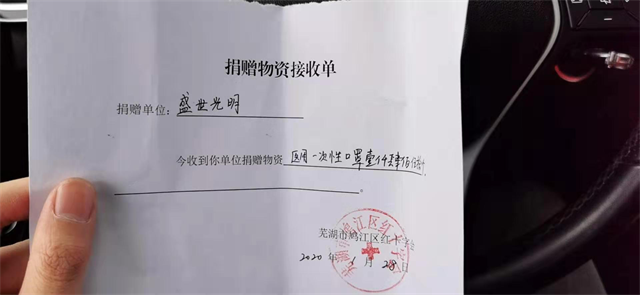 捐赠物资接收单
捐赠单位：盛世光明
今收到你单位捐赠物资 医用一次性口罩壹仟肆佰
芜湖市鸠江区红十字会
2020年1月28日
芜湖市鸠江区红十字会